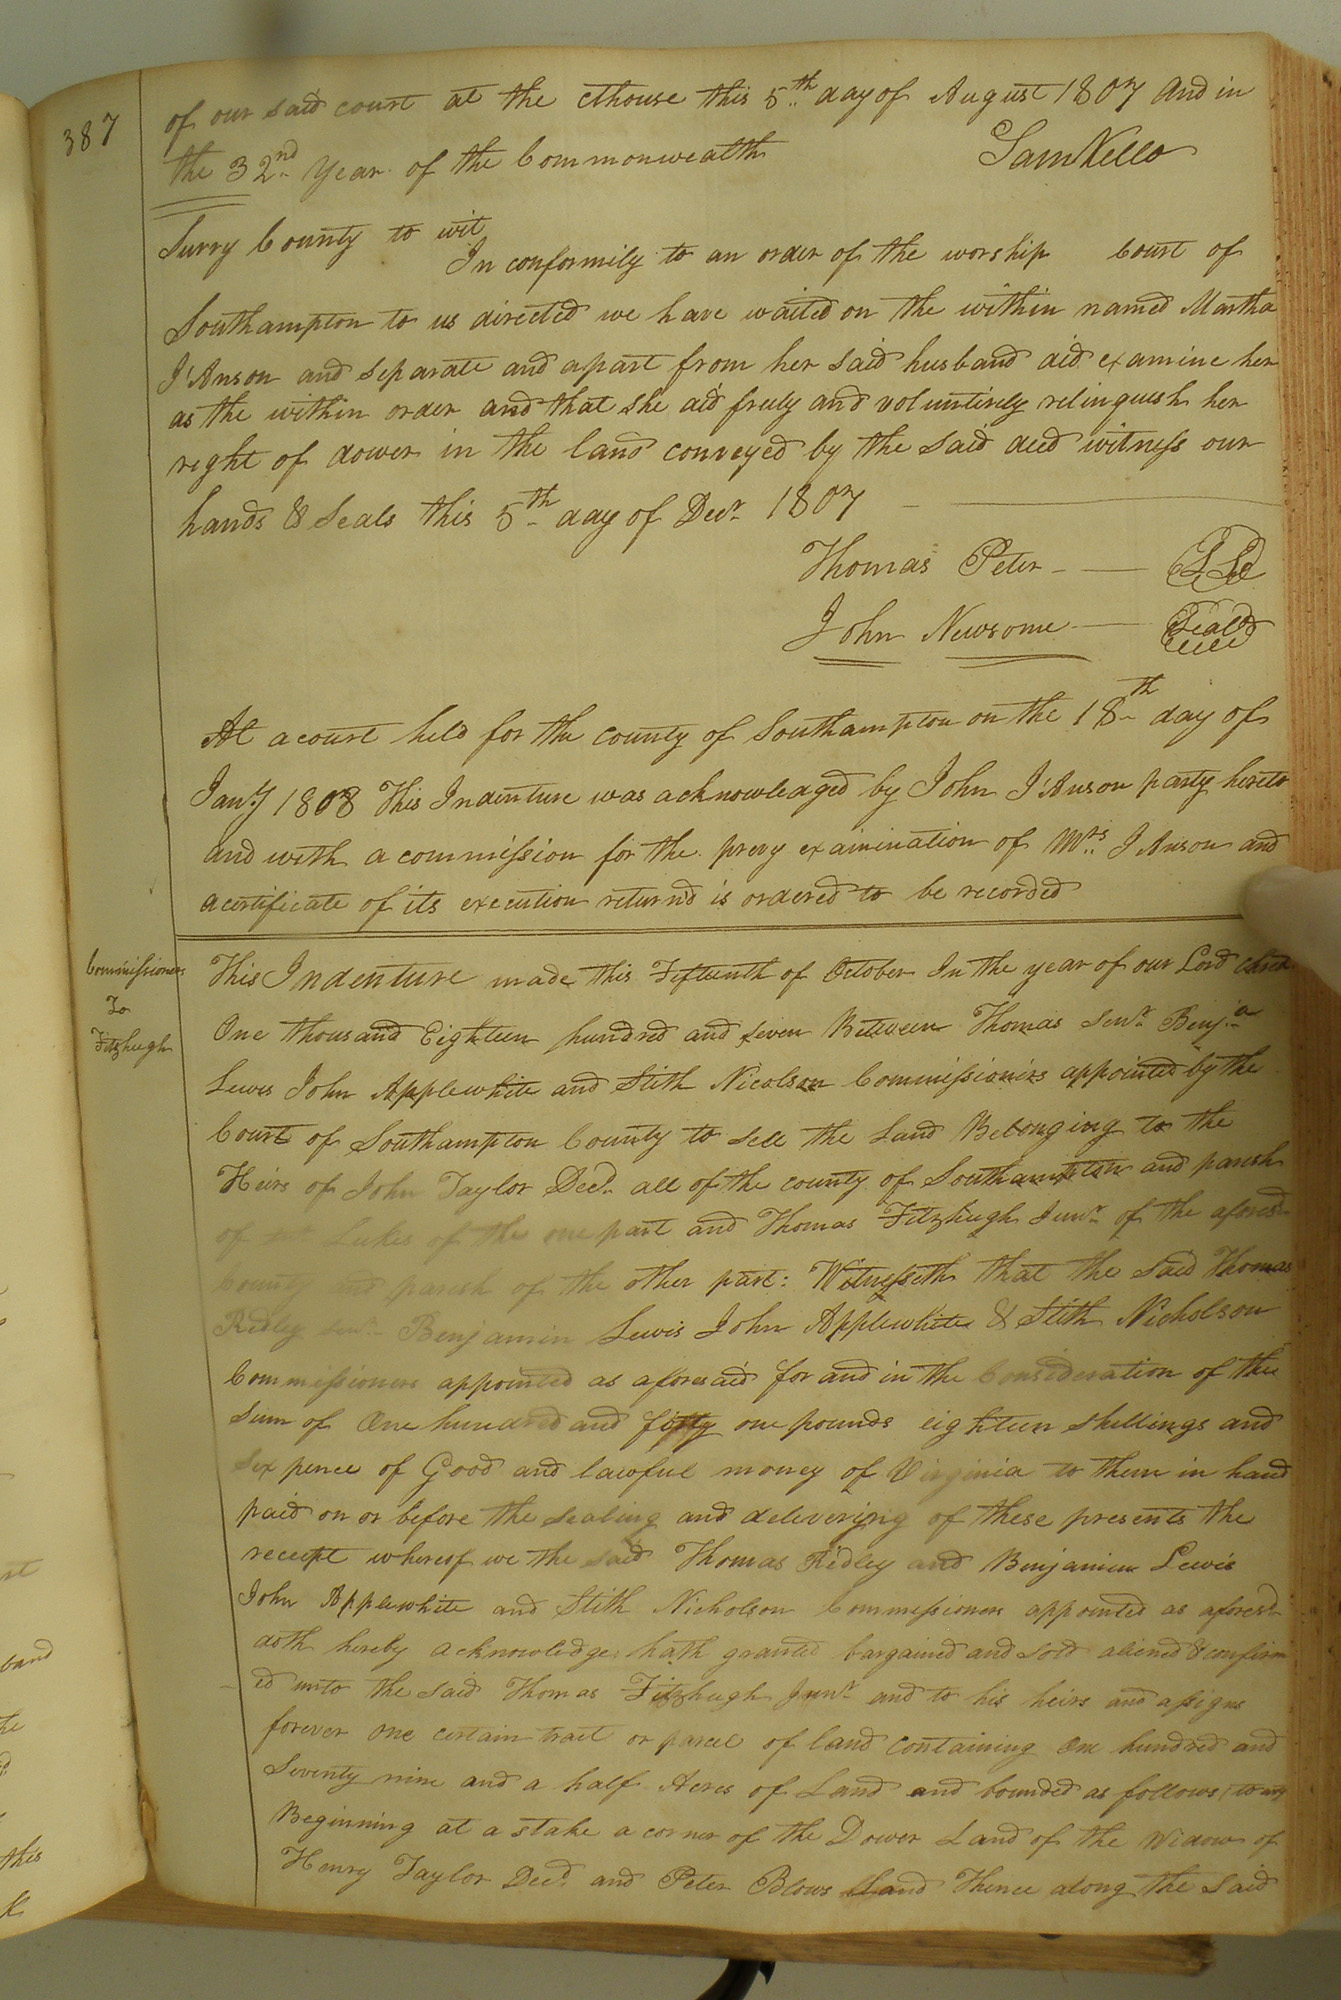 387
of our said court at the cthouse this 5th day of August 1807 And in
the 32nd Year of the Commonwealth Sam Kello
Surry County to wit
In conformity to an order of the worship Court of
Southampton to us directed we have waited on the within named Martha
I'Anson and separate and apart from her said husband did examine her
as the within order and that she did freely and voluntirely relinquish her
right of dower in the land conveyed by the said deed witness our
hands & Seals this 5th day of Decr 1807
Thomas Peter
John Newsome Seal
At a court held for the county of Southampton on the 18th day of
Jany 1808 This Indenture was acknowledged by John I'Anson party hereto
and with a commission for the prevy examination of Mrs I Anson and
a certificate of its execution return'd is ordered to be recorded
Commissioners
To
Fitzhugh
This Indenture made this Fifteenth of October In the year of our Lord christ
One thousand Eighteen hundred and seven Between Thomas Senr Benja
Lewis John Applewhite and Stith Nicolson Commissioners appointed by the
Court of Southampton County to sell the Land Belonging to the
Heirs of John Taylor Decd all of the county of Southampton and parish
of Lukes of the one part and Thomas Fitzhugh Junr of the aforesd
County and parish of the other part: Witnesseth that the said Thomas
Ridley senr Benjamin Lewis John Applewhite & Stith Nicholson
Commissioners appointed as aforesaid for and in the Consideration of the
Sum of One hundred and fifty one pounds eighteen shillings and
six pence of Good and lawful money of Virginia to them in hand
paid on or before the sealing and delivering of these presents the
receipt whereof we the said Thomas Ridley and Benjamin Lewis
John Applewhite and Stith Nicholson Commissioners appointed as aforesd
doth hereby acknowledge hath granted bargained and sold aliened & confirm
ed unto the said Thomas Fitzhugh Junr and to his heirs and assigns
forever one certain tract or parcel of land containing one hundred and
Seventy nine and a half Acres of Land and bounded as follows (to wit)
Beginning at a stake a corner of the Dower Land of the Widow of
Henry Taylor Decd and Peter Blows Land Thence along the said